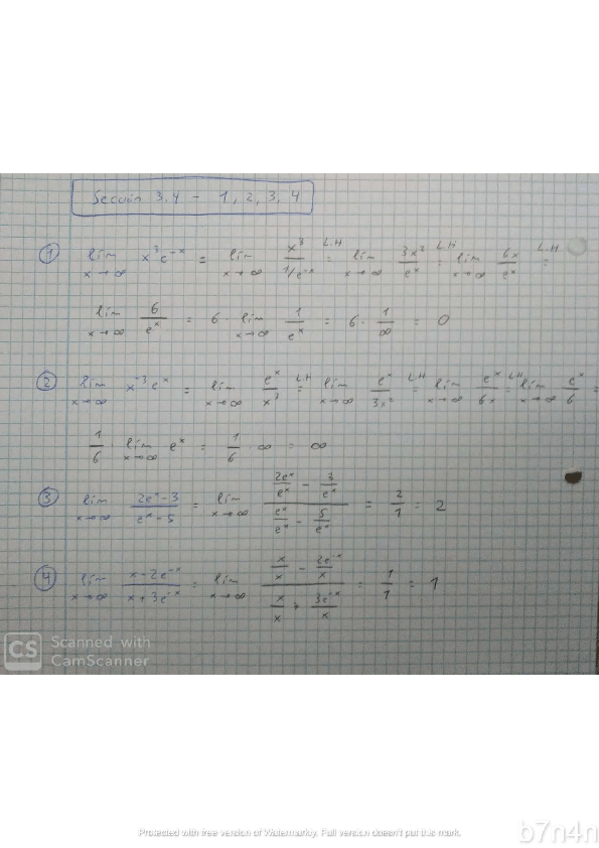 Section 3.4 - 1, 2, 3, 4
① lim x→∞ x³e⁻ˣ = lim x→∞ x³/(1/e⁻ˣ) =ᴸ·ᴴ lim x→∞ 3x²/eˣ =ᴸ·ᴴ lim x→∞ 6x/eˣ =ᴸ·ᴴ
lim x→∞ 6/eˣ = 6 · lim x→∞ 1/eˣ = 6 · 1/∞ = 0
② lim x→∞ x⁻³eˣ = lim x→∞ eˣ/x³ =ᴸ·ᴴ lim x→∞ eˣ/3x² =ᴸ·ᴴ lim x→∞ eˣ/6x =ᴸ·ᴴ lim x→∞ eˣ/6 =
1/6 · lim x→∞ eˣ = 1/6 · ∞ = ∞
③ lim x→∞ (2eˣ-3)/(eˣ-5) = lim x→∞ (2eˣ/eˣ - 3/eˣ)/(eˣ/eˣ - 5/eˣ) = 2/1 = 2
④ lim x→∞ (x-2e⁻ˣ)/(x+3e⁻ˣ) = lim x→∞ (x/x - 2e⁻ˣ/x)/(x/x + 3e⁻ˣ/x) = 1/1 = 1
CS Scanned with
CamScanner
Protected with free version of Watermarkly. Full version doesn't put this mark.
b7n4n